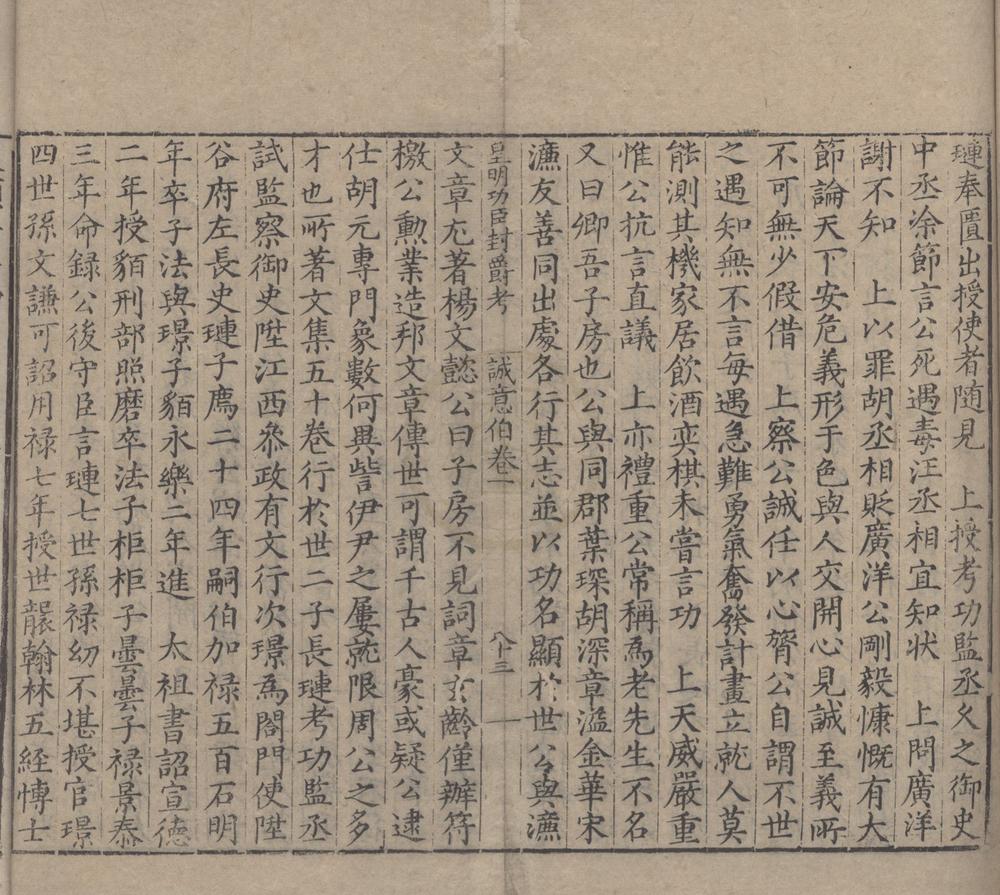 璉奉匱出授使者随見　上授考功監丞久之御史
中丞凃節言公死遇毒汪丞相宜知狀　上問廣洋
謝不知　上以罪胡丞相貶廣洋公剛毅慷慨有大
節論天下安危義形于色與人交開心見誠至義所
不可無少假借　上察公誠任以心膂公自謂不世
之遇知無不言每遇急難勇氣奮發計畫立就人莫
能測其機家居飲酒奕棋未嘗言功　上天威嚴重
惟公抗言直議　上亦禮重公常稱爲老先生不名
又曰卿吾子房也公與同郡葉琛胡深章溢金華宋
濂友善同出處各行其志並以功名顯於世公與濂
皇明功臣封爵考　誠意伯卷一　八十三
文章尤著楊文懿公曰子房不見詞章玄齡僅辦符
檄公勳業造邦文章傳世可謂千古人豪或疑公逮
仕胡元專門象數何異訾伊尹之屢就限周公之多
才也所著文集五十卷行於世二子長璉考功監丞
試監察御史陞江西叅政有文行次璟爲閤門使陞
谷府左長史璉子廌二十四年嗣伯加禄五百石明
年卒子法與璟子貊永樂二年進　太祖書詔宣德
二年授貊刑部照磨卒法子柜柜子曇曇子禄景泰
三年命録公後守臣言璉七世孫禄幼不堪授官璟
四世孫文謙可詔用禄七年授世襲翰林五經博士